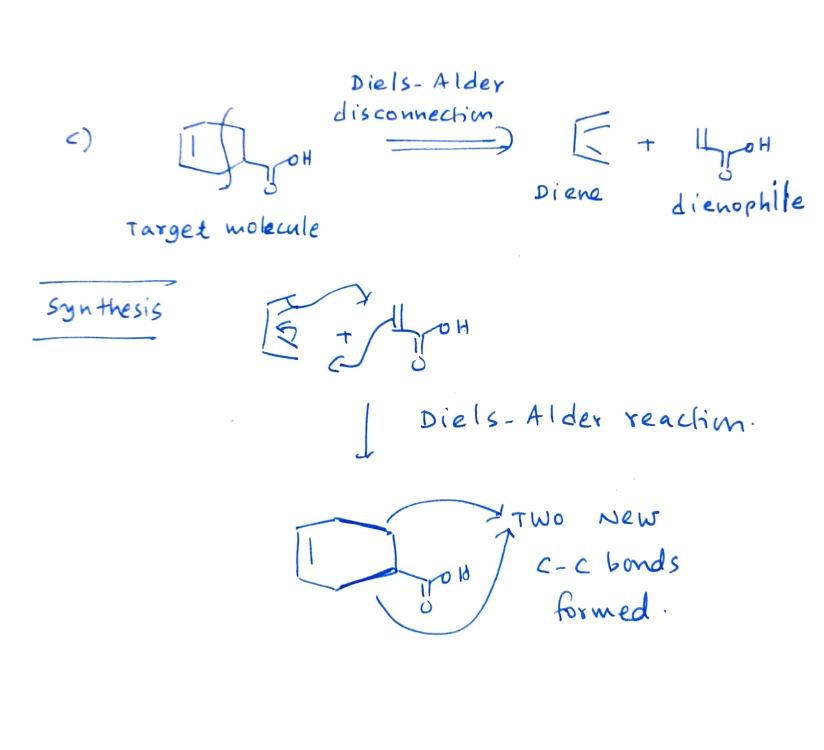 c)
Diels-Alder
disconnection
OH
O
Target molecule
+
OH
O
Diene
dienophile
Synthesis
+
OH
O
Diels-Alder reaction.
OH
O
Two New
C-C bonds
formed.